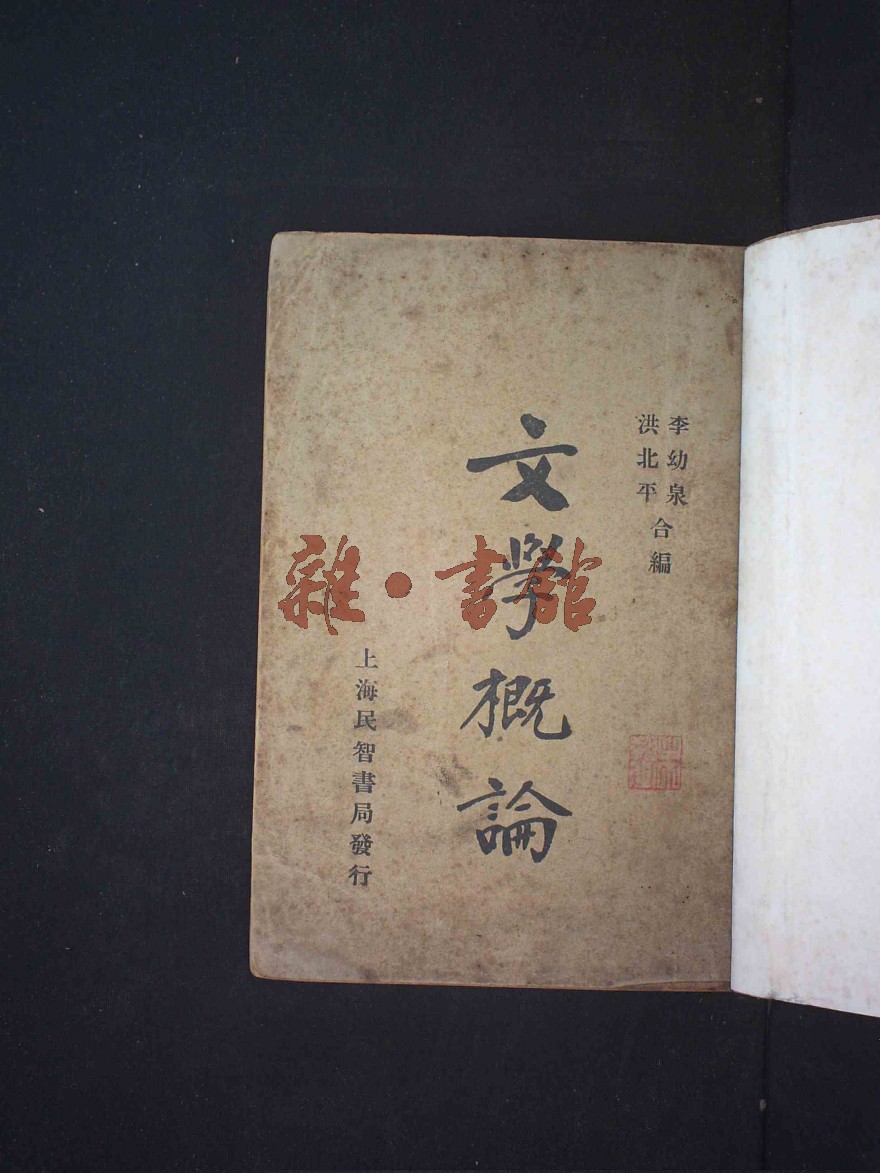 李幼泉
洪北平
合編
文學概論
上海民智書局發行
雜·書館